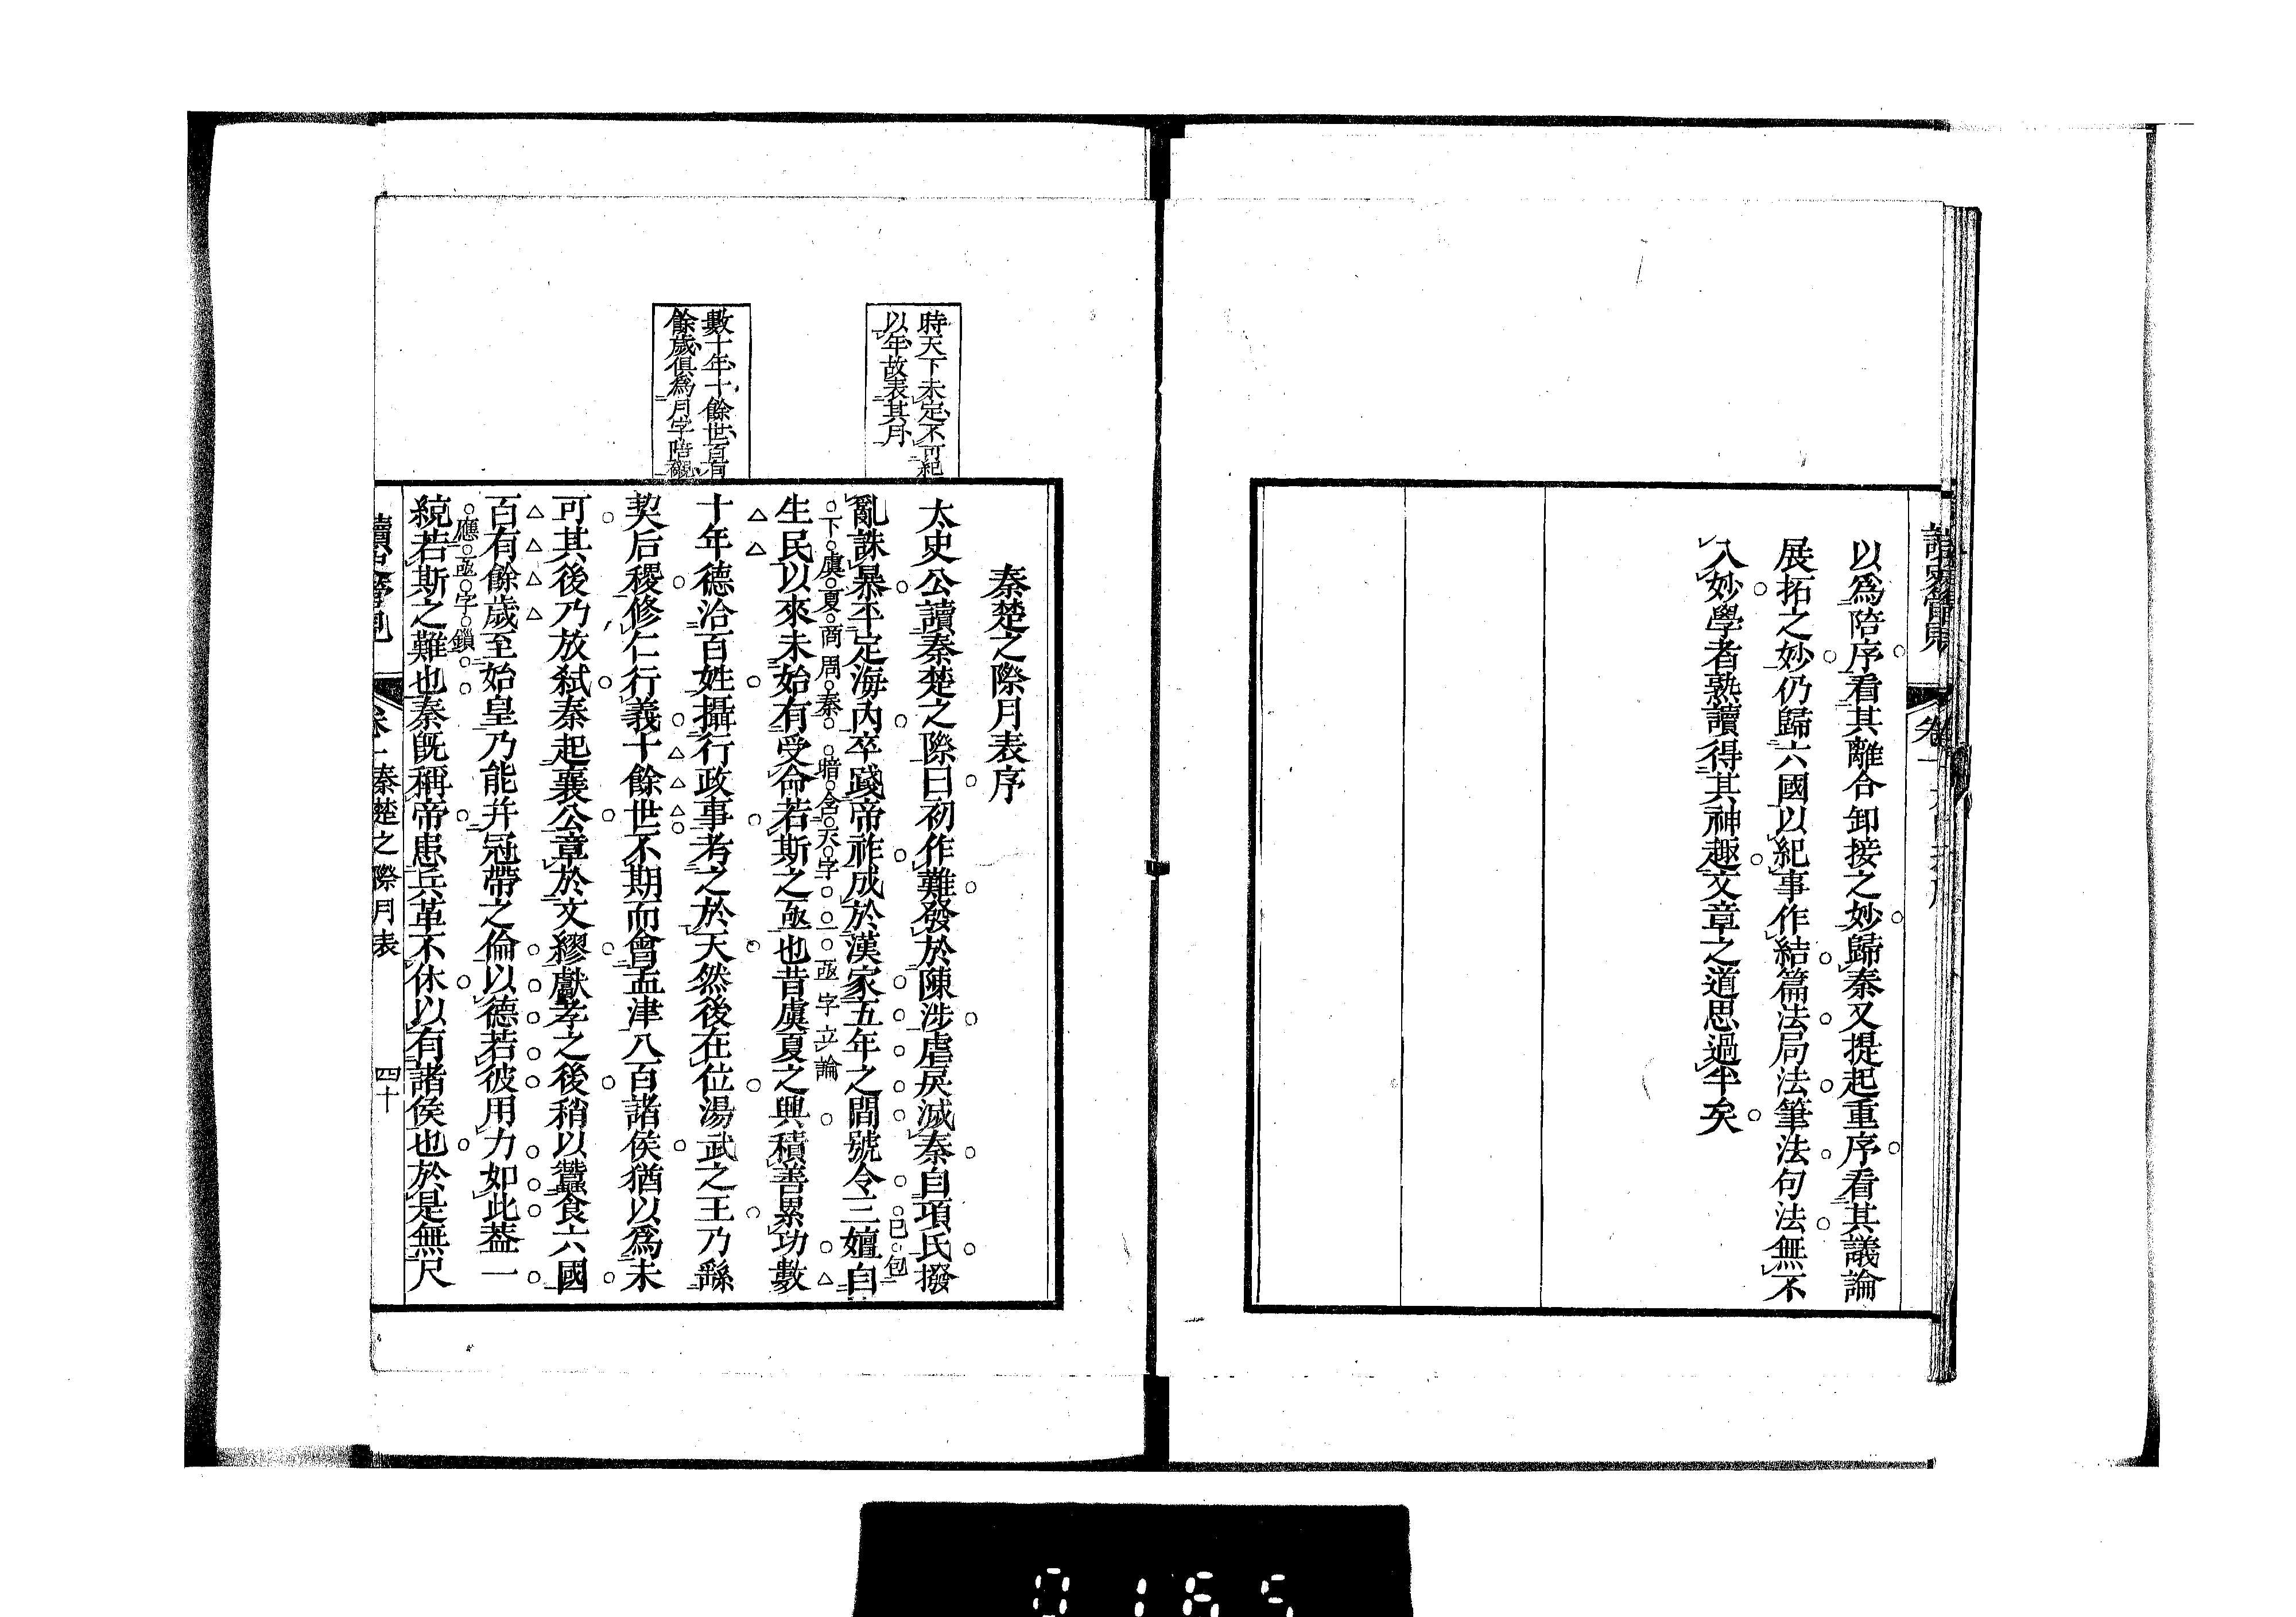 以爲陪序看其離合卸接之妙歸秦又提起重序看其議論
展拓之妙仍歸六國以紀事作結篇法局法筆法句法無不
入妙學者熟讀得其神趣文章之道思過半矣
時天下未定不可紀
以年故表其月
數十年十餘世百有
餘歲俱爲月字陪襯
秦楚之際月表序
太史公讀秦楚之際曰初作難發於陳涉虐戾滅秦自項氏撥
已包
亂誅暴平定海內卒踐帝祚成於漢家五年之間號令三嬗自
下虞夏商周秦 暗含天字 一亟字立論
生民以來未始有受命若斯之亟也昔虞夏之興積善累功數
十年德洽百姓攝行政事考之於天然後在位湯武之王乃繇
契后稷修仁行義十餘世不期而會孟津八百諸侯猶以爲未
可其後乃放弒秦起襄公章於文繆獻孝之後稍以蠶食六國
百有餘歲至始皇乃能幷冠帶之倫以德若彼用力如此蓋一
應亟字鎖
統若斯之難也秦旣稱帝患兵革不休以有諸侯也於是無尺
秦楚之際月表
四十
0165